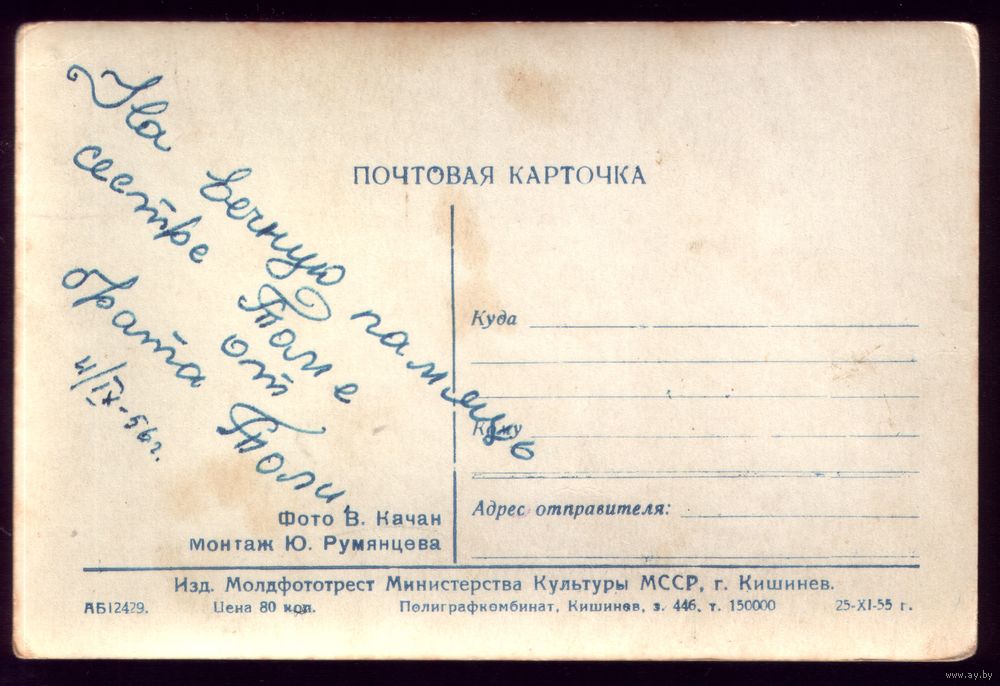 На вечную память
сестре Томе
от
брата Толи.
4/IX-56г.
ПОЧТОВАЯ КАРТОЧКА
Куда
Кому
Адрес отправителя:
Фото В. Качан
Монтаж Ю. Румянцева
Изд. Молдфототрест Министерства Культуры МССР, г. Кишинев.
АБ12429. Цена 80 коп. Полиграфкомбинат, Кишинев, з. 446, т. 150000 25-XI-55 г.
www.ay.by